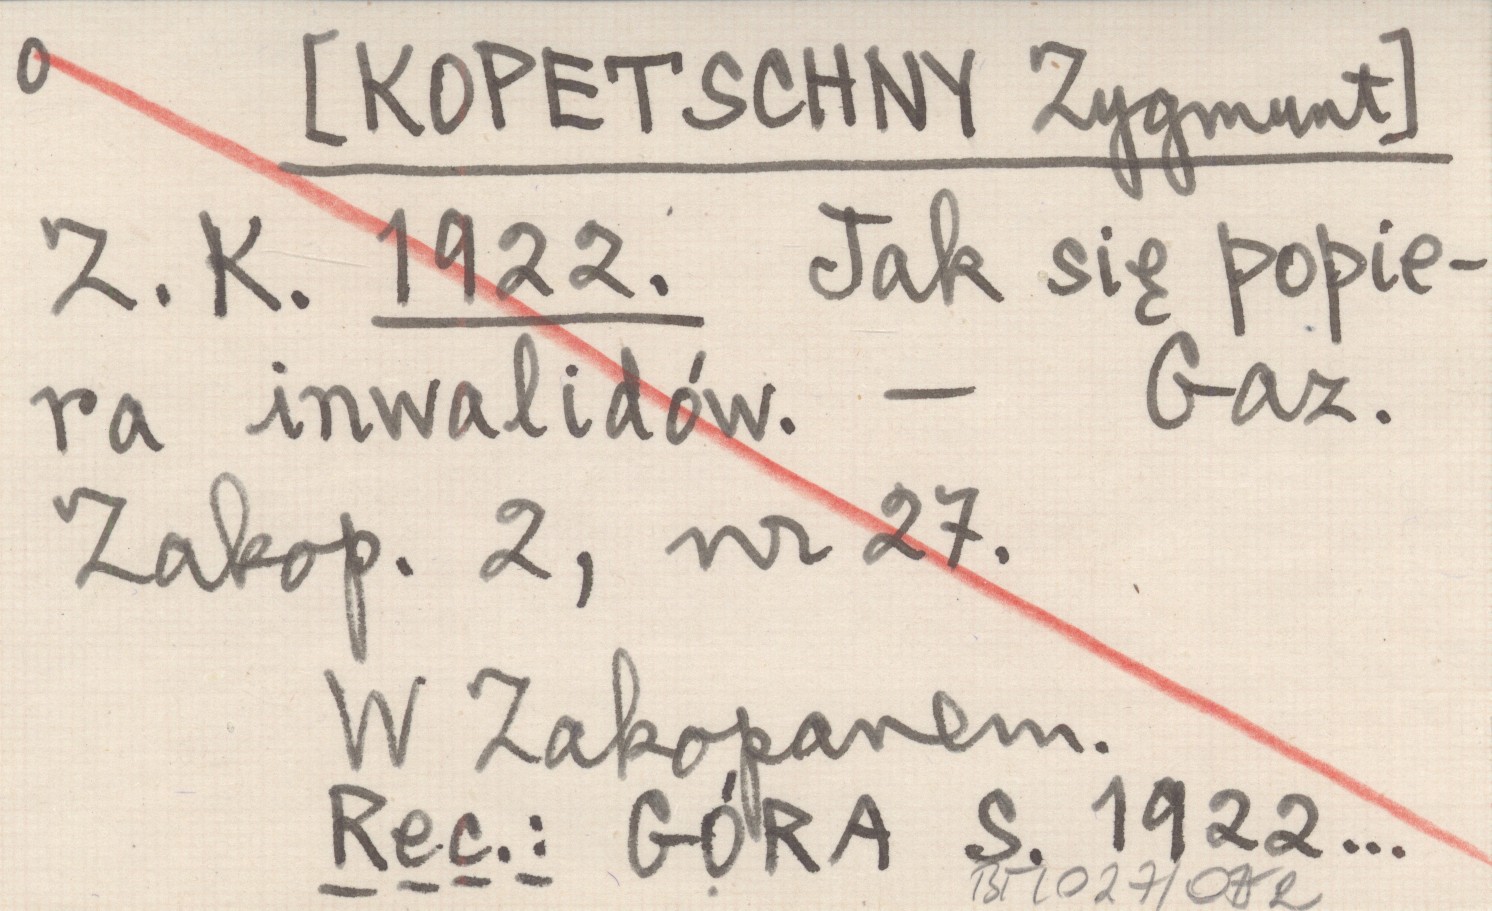 0 [KOPETSCHNY Zygmunt]
Z. K. 1922. Jak się popie-
ra inwalidów. — Gaz.
Zakop. 2, nr 27.
W Zakopanem.
Rec.: GÓRA S. 1922...